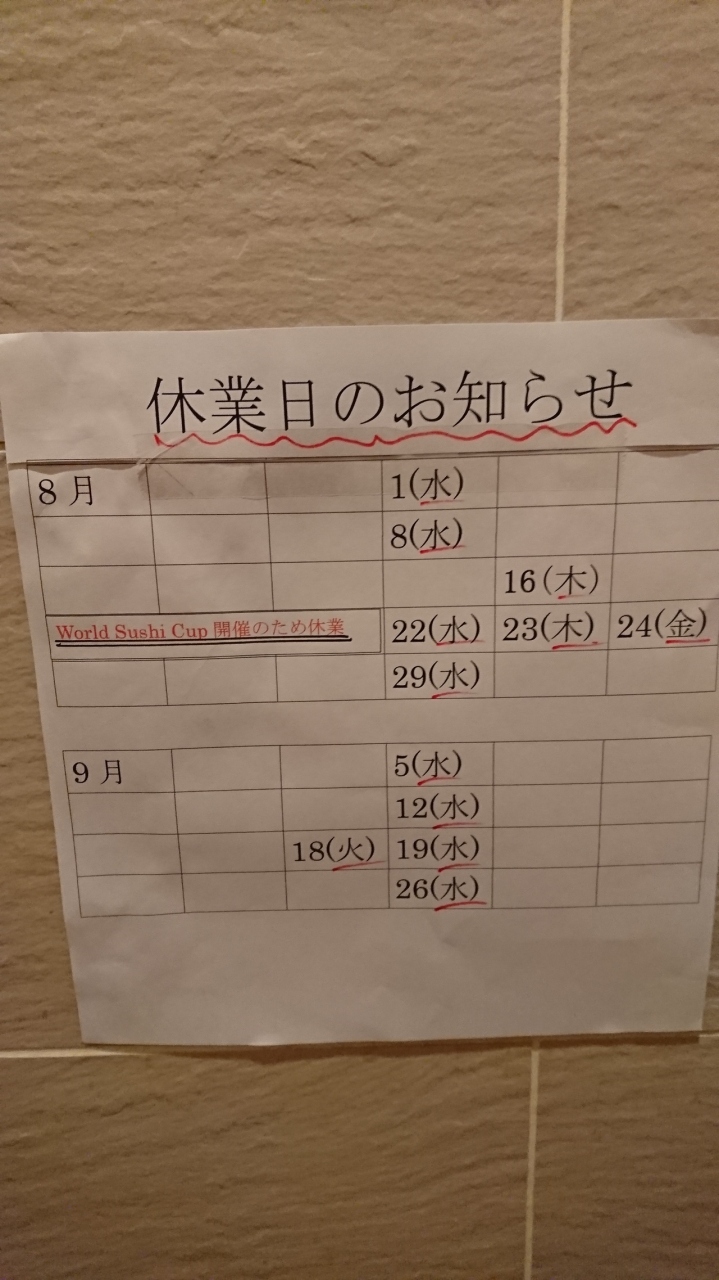 休業日のお知らせ
8月 1(水)
8(水)
16(木)
World Sushi Cup 開催のため休業 22(水) 23(木) 24(金)
29(水)
9月 5(水)
12(水)
18(火) 19(水)
26(水)